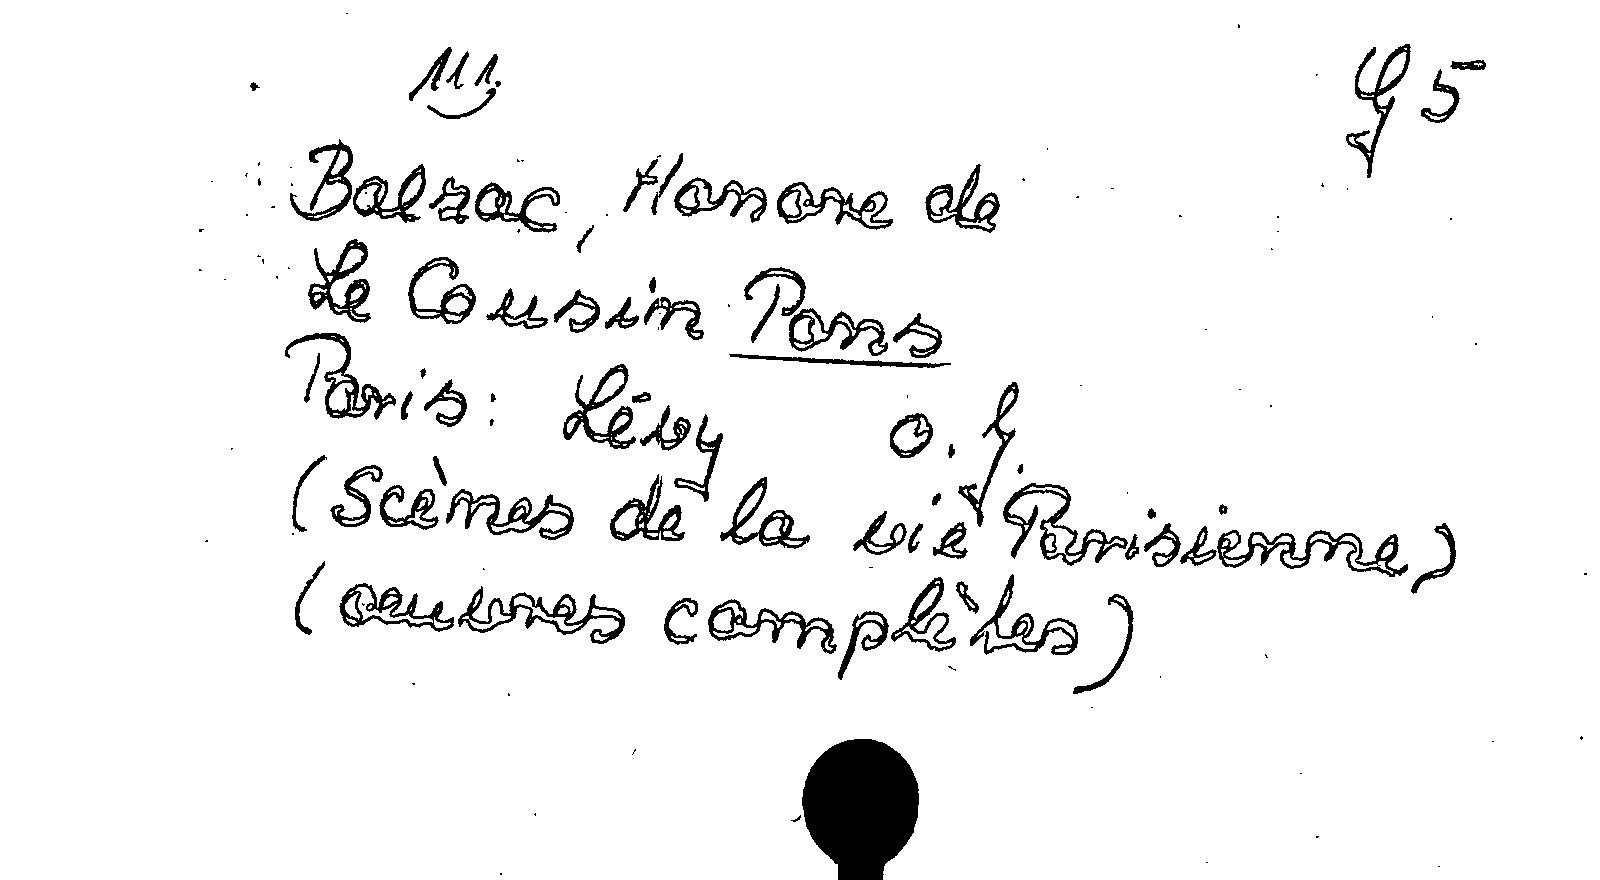 111. G 5
Balzac, Honore de
Le Cousin Pons
Paris: Lévy o. J.
(Scènes de la vie Parisienne)
(oeuvres complètes)